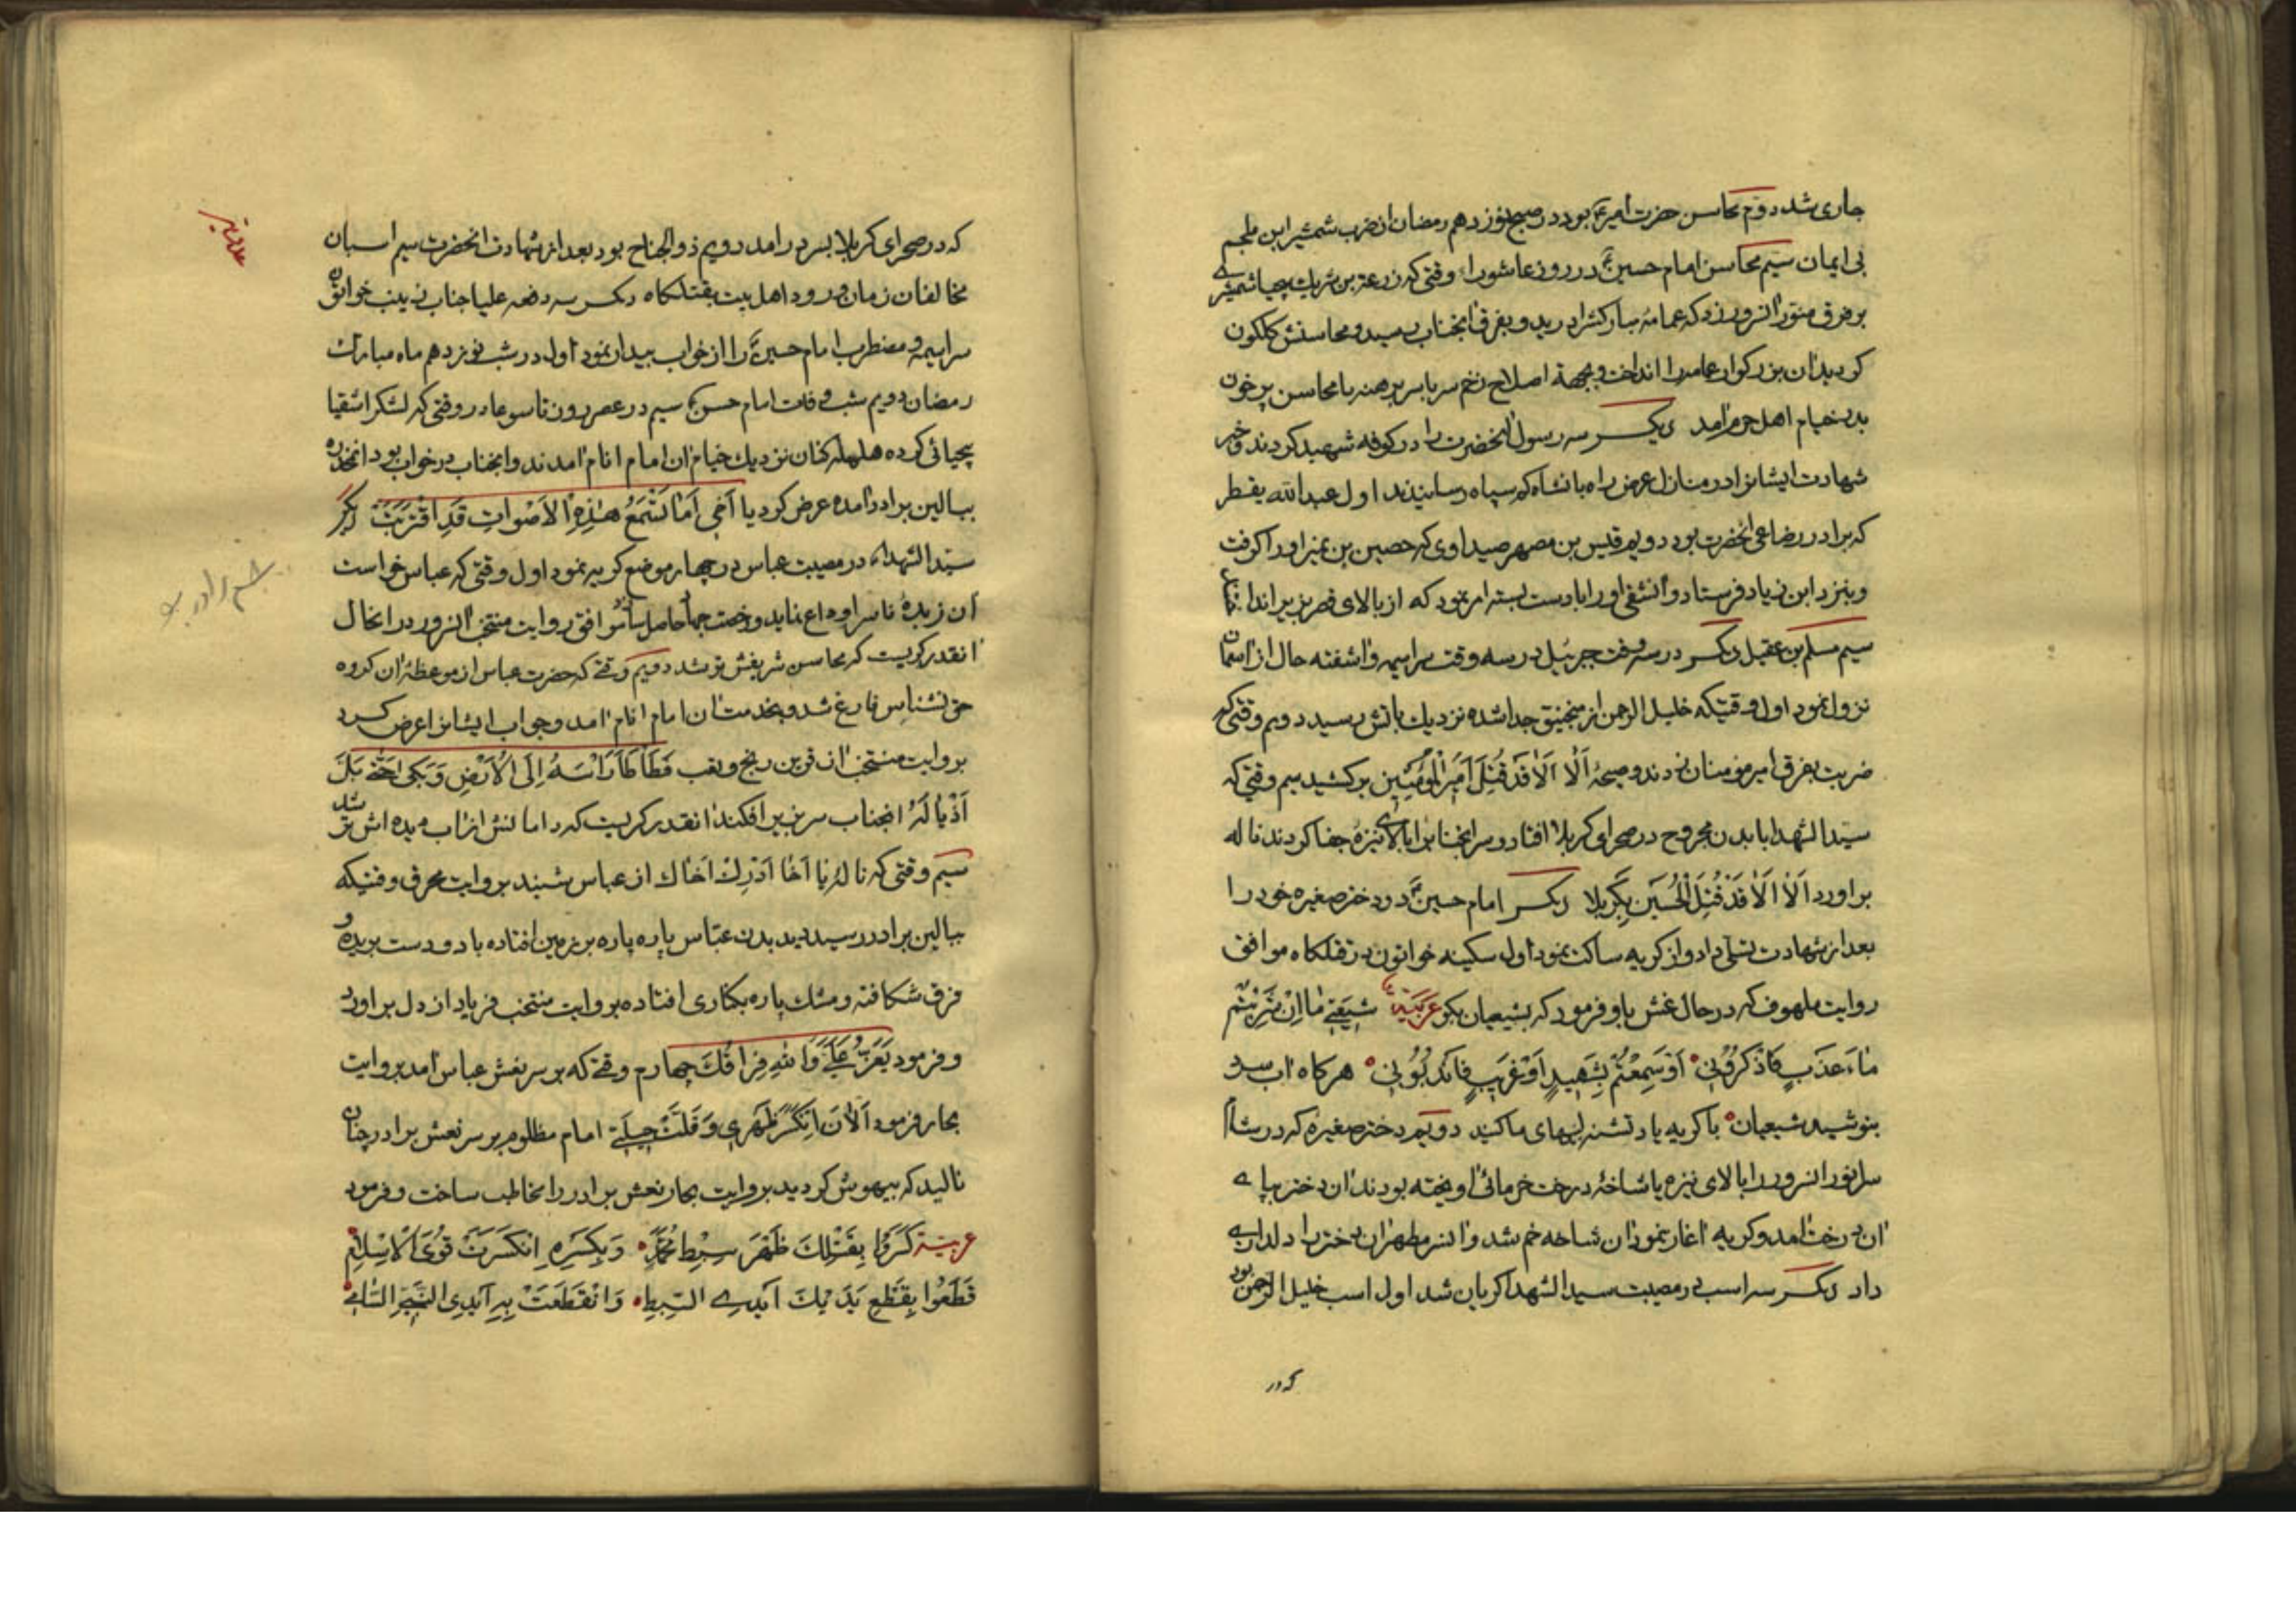 جاری شد دوّم محاسن حضرت امیرؑ بود در صبح نوزدهم رمضان از ضرب شمشیر ابن ملجم
بی ایمان سیم محاسن امام حسینؑ در روز عاشورا وقتی که زرعة بن شریک بیحیا شمشیرے
بر فرق منوّر انسرور زد که عمامهٔ مبارکش را درید و بفرق انجناب رسید و محاسنش کلکون
کردید ان بزرکوار عمامه را انداخت و بجهة اصلاح زخم سر با سر برهنه با محاسن پر خون
بدر خیام اهل حرم آمد دیکر سه رسول آنحضرت را در کوفه شهید کردند و خبر
شهادت ایشانرا در منازل عرض راه بانشاه کم سپاه رسانیدند اول عبدالله یقطر
که برادر رضاعی آنحضرت بود دویم قیس بن مصهر صیداوی که حصین بن نمیر او را کرفت
و بنزد ابن زیاد فرستاد و آنشقی او را با دست بسته امر نمود که از بالای قصر بزیر انداختند
سیم مسلم بن عقیل دیکر در سه وقت جبرئیل در سه وقت سراسیمه و اشفته حال از آسمان
نزول نمود اول وقتیکه خلیل الرحمن از منجنیق جدا شده نزدیک باتش رسید دویم وقتی که
ضربت بفرق امیر مؤمنان زدند و صیحهٔ اَلٰا اَلٰا قَدْ قُتِلَ اَمیرَ الْمُؤمِنین برکشید سیم وقتی که
سیّد الشهدا با بدن مجروح در صحرای کربلا افتاد و سر انجناب را بالای نیزهٔ جفا کردند ناله
براورد اَلٰا اَلٰا قَدْ قُتِلَ الْحُسَین بِکَرْبَلا دیکر امام حسینؑ دو دختر صغیره خود را
بعد از شهادت تسلّی داد و از کریه ساکت نمود اول سکینه خواتون در قتلکاه موافق
روایت ملهوف که در حال غش باو فرمود که بشیعیان بکو عربیّة شیعَتی مٰا اِنْ شَرِبْتُم
مٰاءَ عَذْبٍ فَاذْکُرُونی اَوْ سَمِعْتُم بِشَهیدٍ اَوْ غَریبٍ فَانْدُبُونی هرکاه آب سرد
بنوشید شیعیان با کریه یاد تشنه لبهای ما کنید دویم دختر صغیره که در شام
سر انور انسرور را بالای نیزه یا شاخهٔ درخت خرمائی آویخته بودند آن دختر بپاے
آن درخت آمد و کریه آغاز نمود آن شاخه خم شد و آنسر مطهر آن دختر را دلداریے
داد دیکر سه اسب در مصیبت سید الشهدا کریان شد اول اسب خلیل الرحمن بود
که در
که در صحرای کربلا بسر درامد دویم ذوالجناح بود بعد از شهادت انحضرت سیم اسبان
مخالفان زمان ورود اهل بیت بقتلکاه دیکر سه دفعه علیا جناب زینب خواتون
سراسیمه و مضطرب امام حسینؑ را از خواب بیدار نمود اول در شب نوزدهم ماه مبارک
رمضان دویم شب وفات امام حسنؑ سیم در عصر روز تاسوعا در وقتی که لشکر اشقیا
بیحیائی کرده هلهله کنان نزدیک خیام ان امام انام آمدند و انجناب در خواب بود انمخدره
ببالین برادر امده عرض کرد یا اَخی اَمٰا تَسْمَعُ هٰذِهِ الْاَصْوٰاتِ قَدِ اقْتَرَبَتْ دیکر
سیّد الشهداء در مصیبت عباس در چهار موضع کریه نمود اول وقتی که عباس خواست
آن زبدهٔ ناس را وداع نماید و رخصت جهاد حاصل سازد موافق روایت منتخب آنسرور در انحال
آنقدر کریست که محاسن شریفش تر شد دویم وقتے که حضرت عباس از موعظهٔ ان کروه
حق نشناس فارغ شد و بخدمت ان امام انام آمد و جواب ایشانرا عرض کرد
بروایت منتخب ان قرین رنج و تعب فَطَأطَأ رَأسَهُ اِلَی الْاَرْضِ وَ بَکی حَتّٰی بَلَّ
اَذْیٰالَهُ انجناب سر بزیر افکند آنقدر کریست که دامانش از اب دیده اش تر شد
سیم وقتی که نالهٔ یا اَخٰا اَدْرِکْ اَخٰاک از عباس شنید بروایت محرق وقتیکه
ببالین برادر رسید دید بدن عبّاس پاره پاره بر زمین افتاده با دو دست بریده و
فرق شکافته و مشک پاره بکناری افتاده بروایت منتخب فریاد از دل براورد
و فرمود یَعَزُّ عَلَیَّ وَاللهِ فِرٰاقُکَ چهارم وقتے که بر سر نعش عباس آمد بروایت
بحار فرمود اَلْاٰنَ اِنْکَسَرَ ظَهْری وَ قَلَّتْ حیلَتی امام مظلوم بر سر نعش برادر چنان
نالید که بیهوش کردید بروایت بحار نعش برادر را مخاطب ساخت و فرمود
عربیّة کَسَرُوا بِقَتْلِکَ ظَهْرَ سِبْطِ مُحَمَّدٍ وَ بِکَسْرِهِ انْکَسَرَتْ قُوَی الْاِسْلٰامِ
قَطَعُوا بِقَطْعِ یَدَیْکَ اَیْدِے السِّبْطِ وَ انْقَطَعَتْ بِهِ اَیْدِی